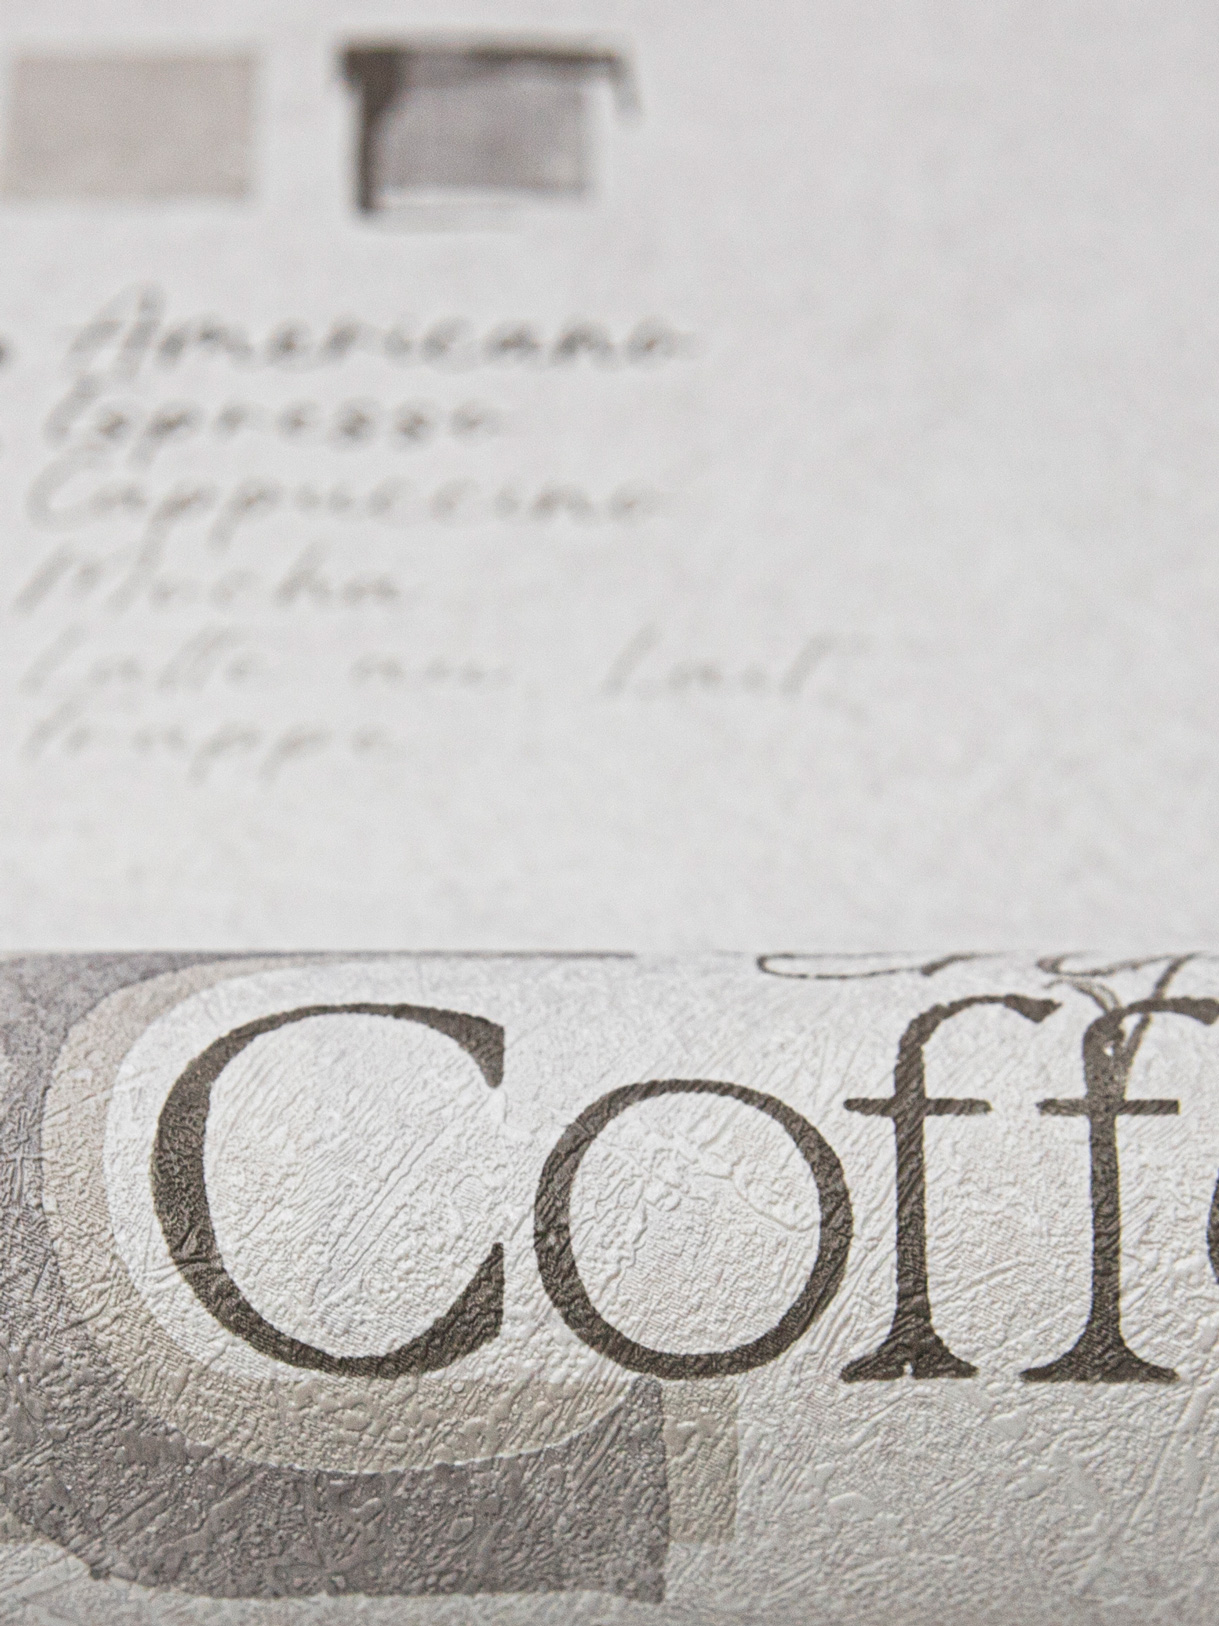 Americano
Espresso
Cappuccino
Mocha
Latte au Lait
Frappe
Coff